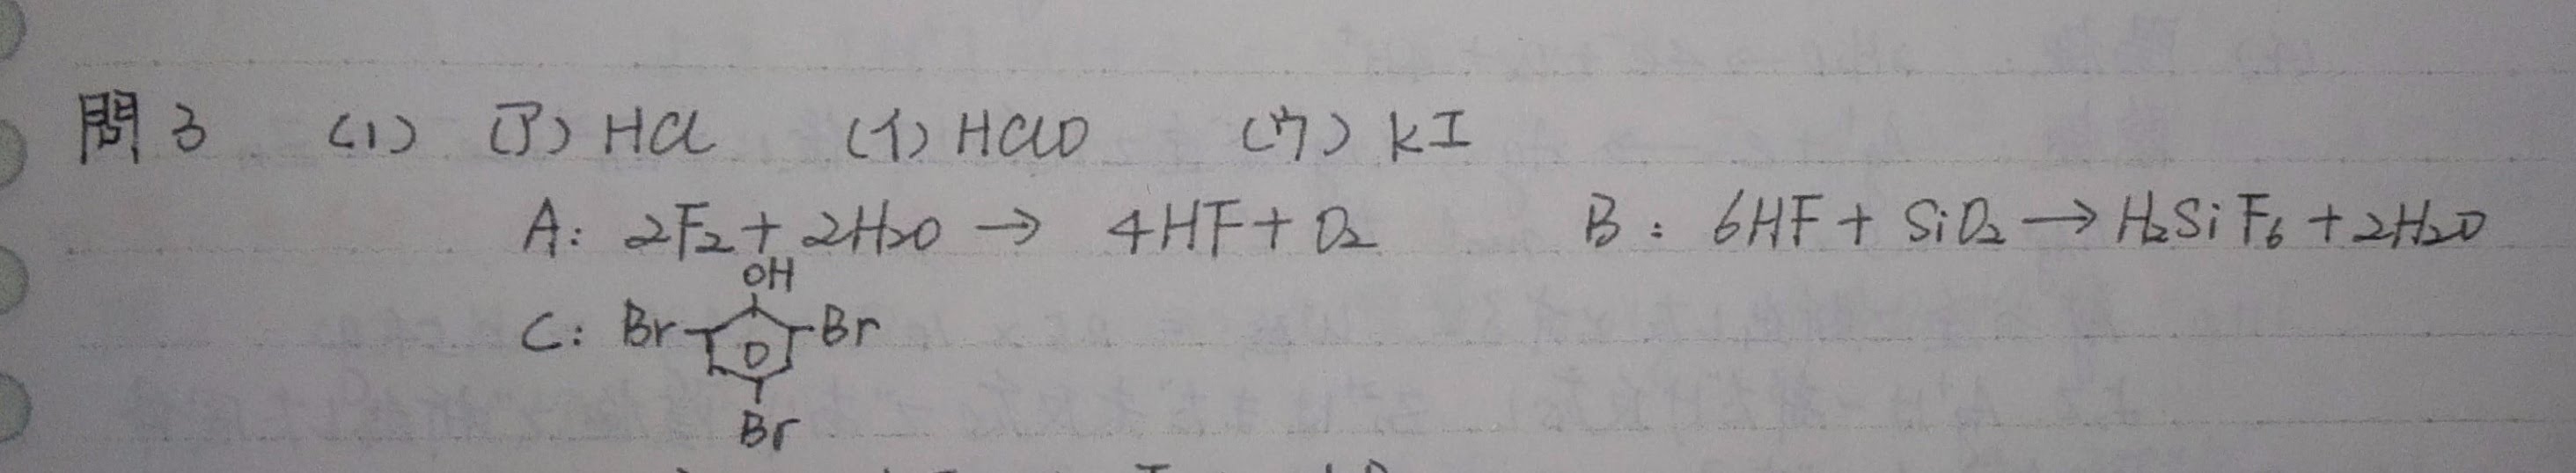 問3 (1) (ア) HCl (イ) HClO (ウ) KI
A: 2F₂ + 2H₂O → 4HF + O₂ B: 6HF + SiO₂ → H₂SiF₆ + 2H₂O
OH
C: Br Br
Br